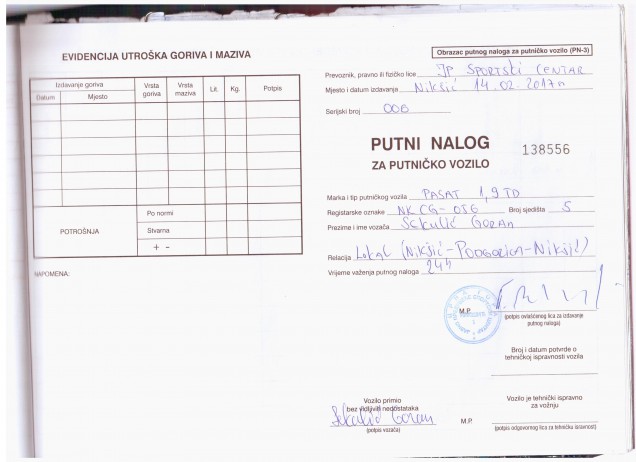 EVIDENCIJA UTROŠKA GORIVA I MAZIVA
Izdavanje goriva
Datum
Mjesto
Vrsta goriva
Vrsta maziva
Lit.
Kg.
Potpis
POTROŠNJA
Po normi
Stvarna
+ -
NAPOMENA:
Obrazac putnog naloga za putničko vozilo (PN-3)
Prevoznik, pravno ili fizičko lice JP SPORTSKI CENTAR
Mjesto i datum izdavanja Nikšić 14.02.2017
Serijski broj 006
PUTNI NALOG
ZA PUTNIČKO VOZILO
138556
Marka i tip putničkog vozila PASAT 1,9 TD
Registarske oznake NK CG-056 Broj sjedišta 5
Prezime i ime vozača Sekulić Goran
Relacija Lokal (Nikšić-Podgorica-Nikšić)
Vrijeme važenja putnog naloga 24h
M.P.
(potpis ovlašćenog lica za izdavanje
putnog naloga)
Broj i datum potvrde o
tehničkoj ispravnosti vozila
Vozilo primio
bez vidljivih nedostataka
Sekulić Goran
(potpis vozača)
Vozilo je tehnički ispravno
za vožnju
M.P.
(potpis odgovornog lica za tehničku ispravnost)